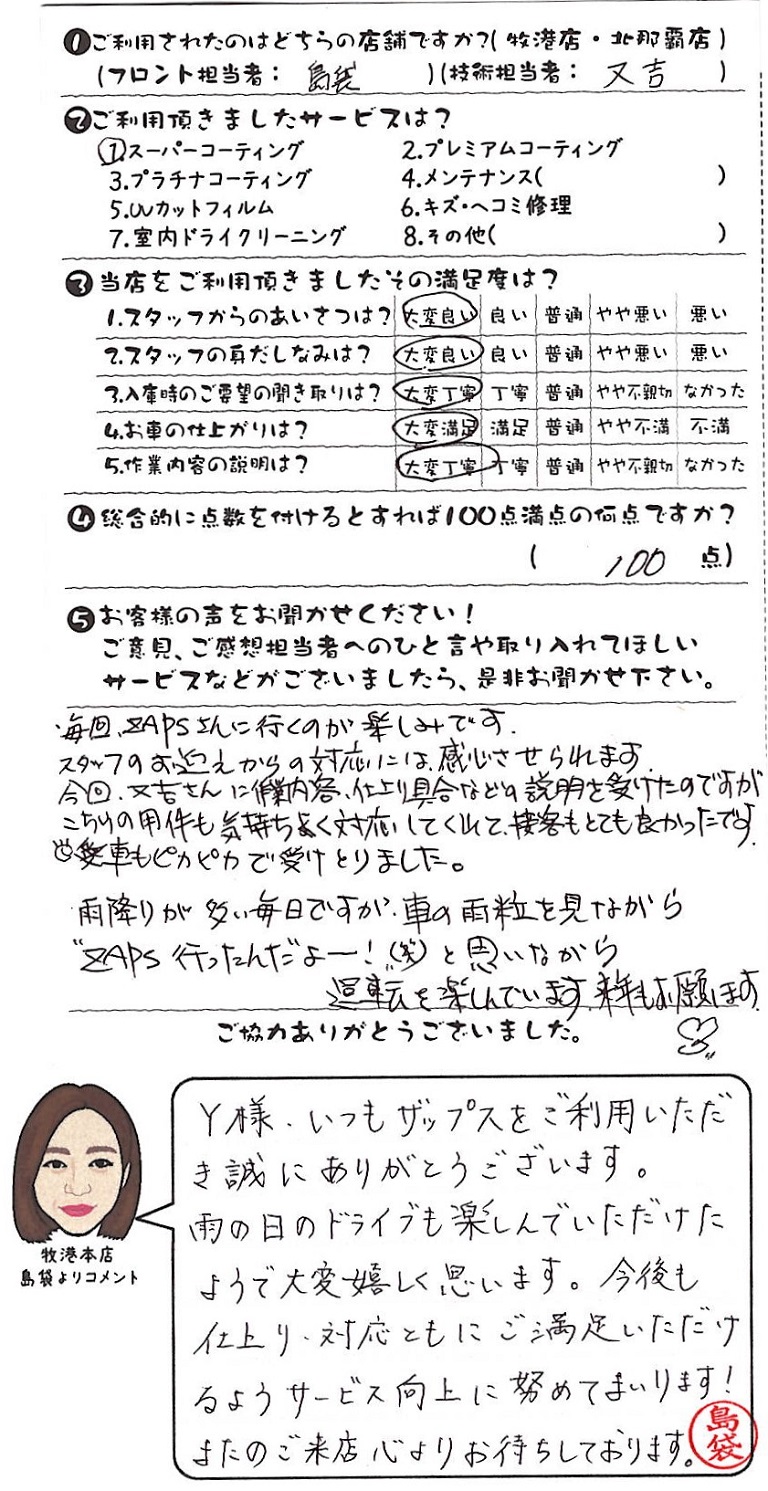 ❶ご利用されたのはどちらの店舗ですか?(牧港店・北那覇店)
(フロント担当者: 島袋 )(技術担当者: 又吉 )
❷ご利用頂きましたサービスは?
①.スーパーコーティング 2.プレミアムコーティング
3.プラチナコーティング 4.メンテナンス( )
5.UVカットフィルム 6.キズ・ヘコミ修理
7.室内ドライクリーニング 8.その他( )
❸当店をご利用頂きましたその満足度は?
1.スタッフからのあいさつは? 大変良い 良い 普通 やや悪い 悪い
2.スタッフの身だしなみは? 大変良い 良い 普通 やや悪い 悪い
3.入庫時のご要望の聞き取りは? 大変丁寧 丁寧 普通 やや不親切 なかった
4.お車の仕上がりは? 大変満足 満足 普通 やや不満 不満
5.作業内容の説明は? 大変丁寧 丁寧 普通 やや不親切 なかった
❹総合的に点数を付けるとすれば100点満点の何点ですか?
( 100 点)
❺お客様の声をお聞かせください!
ご意見、ご感想担当者へのひと言や取り入れてほしい
サービスなどがございましたら、是非お聞かせ下さい。
毎回、ZAPSさんに行くのが楽しみです.
スタッフのお迎えからの対応には、感心させられます.
今回、又吉さんに作業内容、仕上り具合などの説明を受けたのですが
こちらの用件も気持ちよく対応してくれて、接客もとても良かったです.
愛車もピカピカで受けとりました。
雨降りが多い毎日ですが、車の雨粒を見ながら
"ZAPS行ったんだよー!(笑)と思いながら
運転を楽しんでいます.来年もお願いします.
ご協力ありがとうございました。
Y様、いつもザップスをご利用いただ
き誠にありがとうございます。
雨の日のドライブも楽しんでいただけた
ようで大変嬉しく思います。今後も
仕上り、対応ともにご満足いただけ
るようサービス向上に努めてまいります!
またのご来店心よりお待ちしております。
島袋
牧港本店
島袋よりコメント